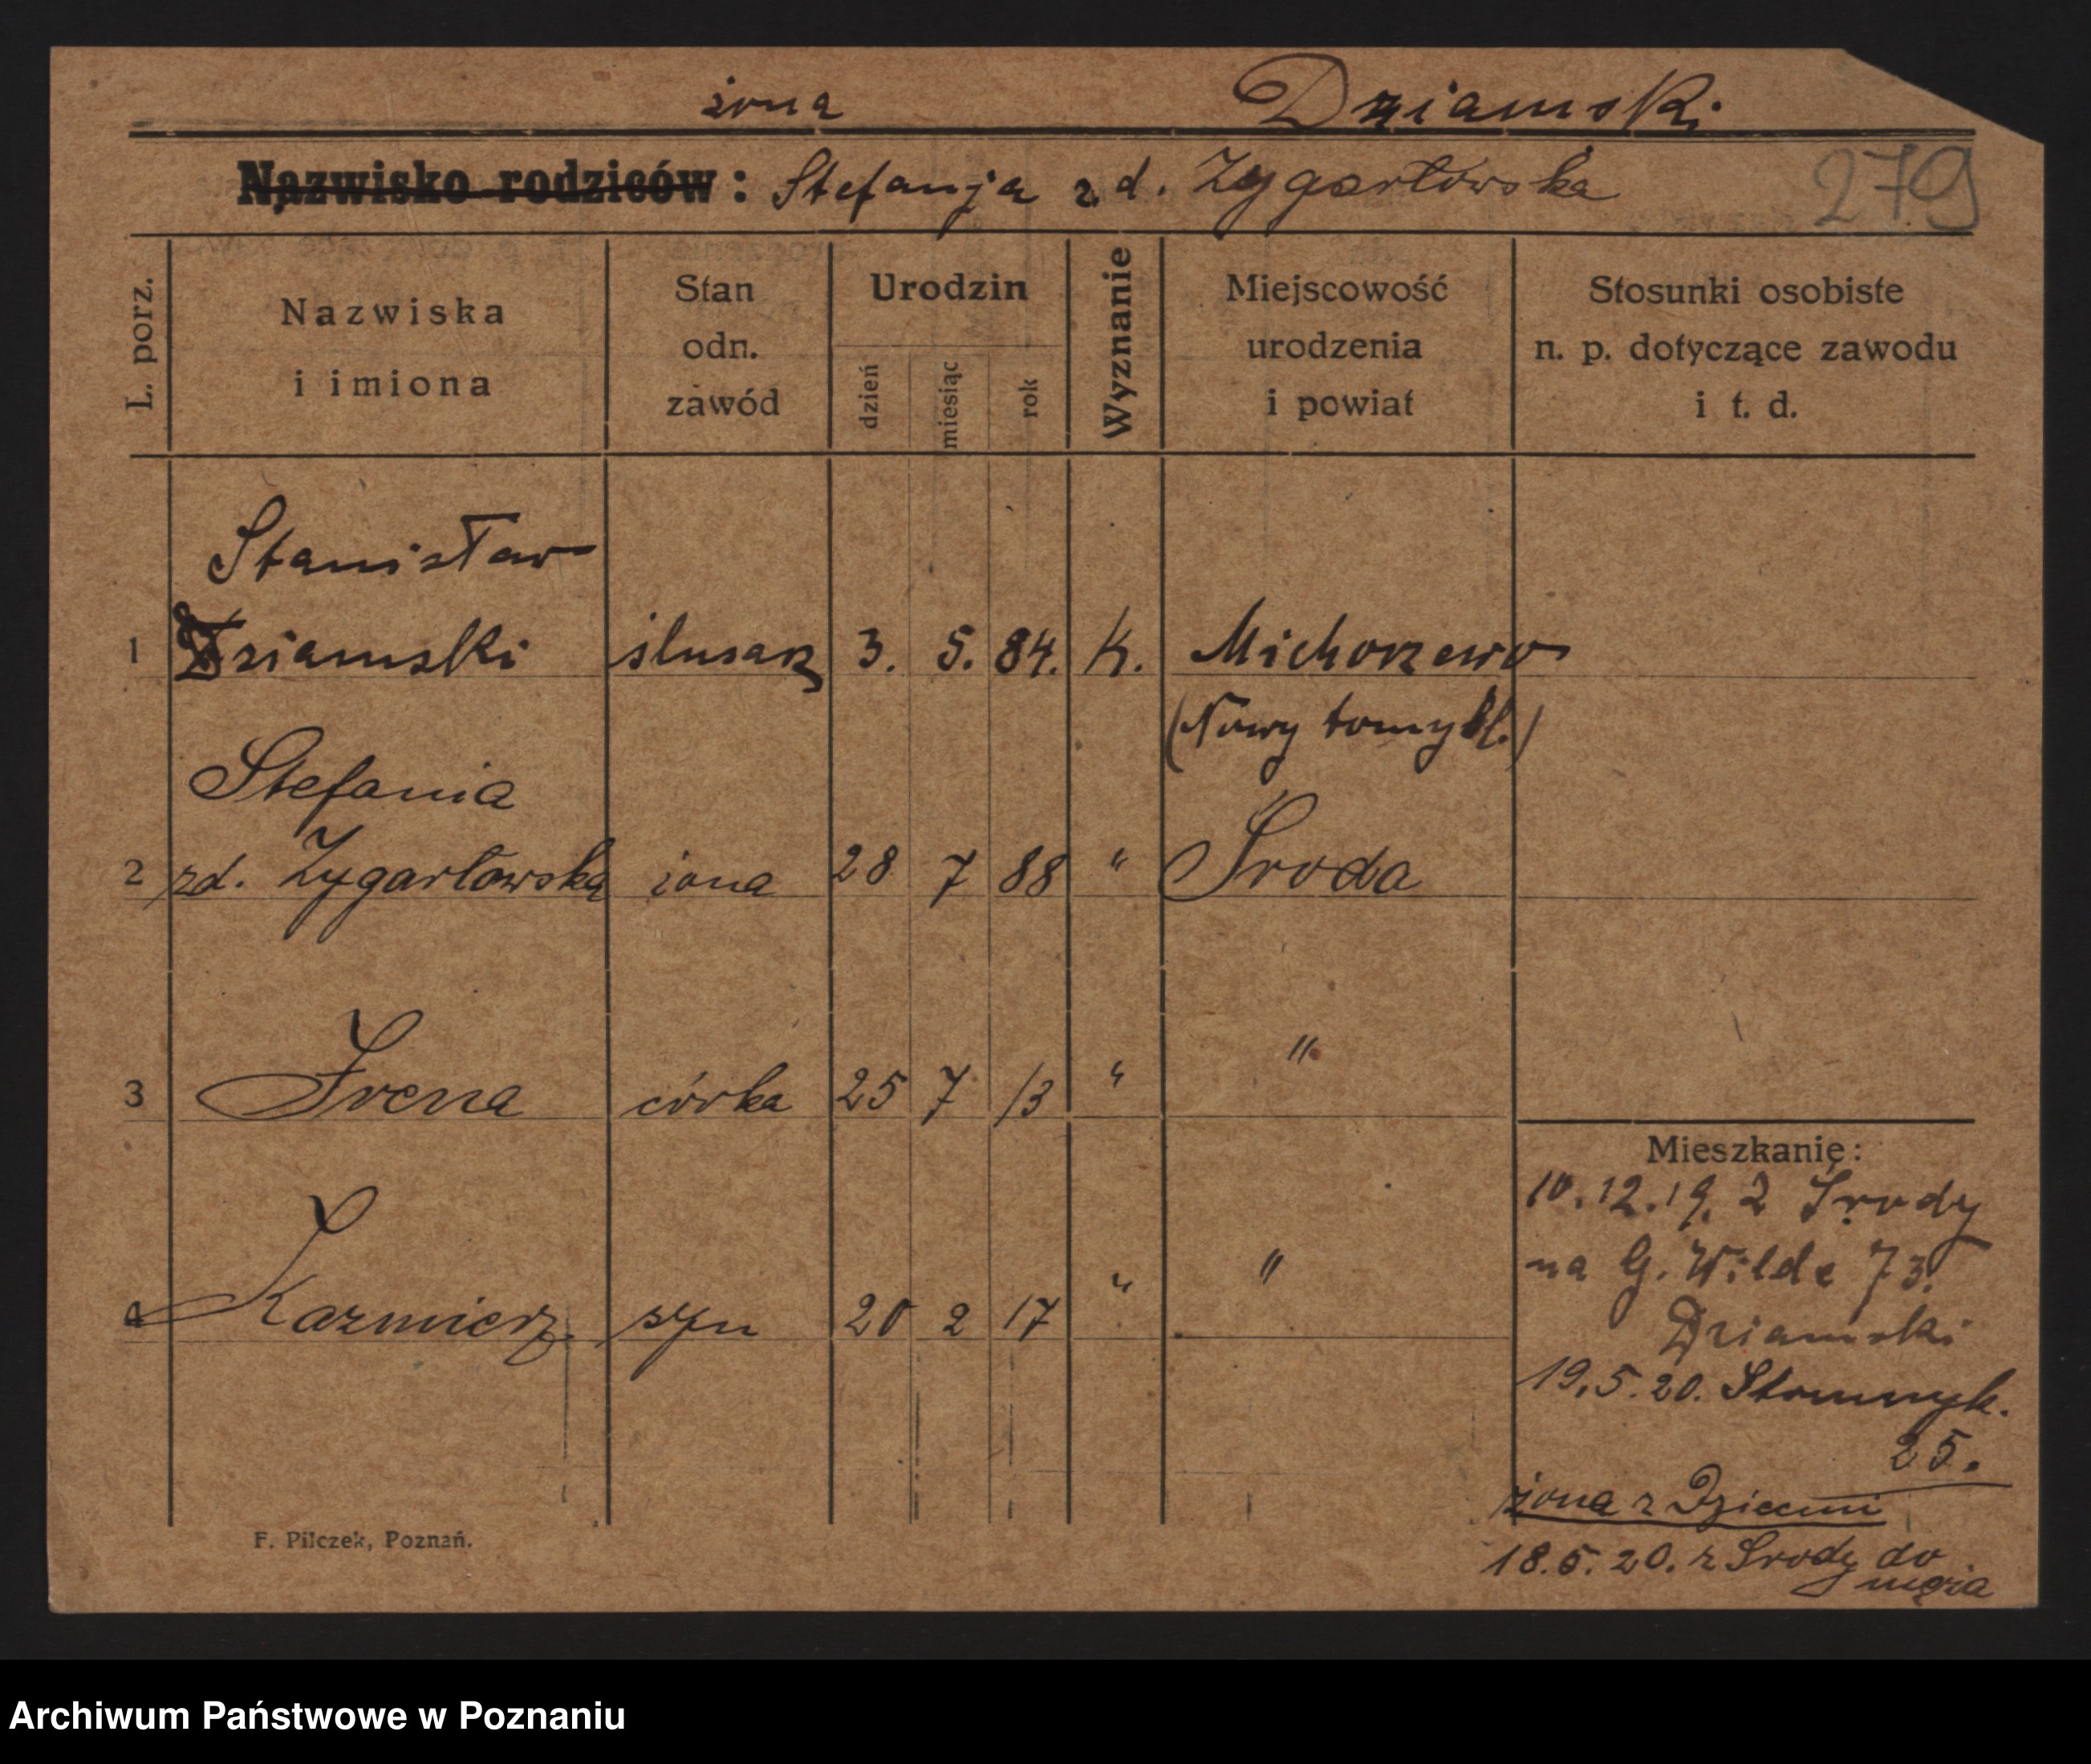 żona Dziamski
Nazwisko rodziców: Stefanja z d. Zygartowska
279
L. porz.
Nazwiska i imiona
Stan odn. zawód
Urodzin
dzień
miesiąc
rok
Wyznanie
Miejscowość urodzenia i powiat
Stosunki osobiste n. p. dotyczące zawodu i t. d.
Stanisław
1 Dziamski ślusarz 3. 5. 84. K. Michorzewo
(Nowy tomyśl.)
Stefania
2 zd. Zygartowska żona 28 7 88 " Środa
3 Irena córka 25 7 13 " "
4 Kazmierz. syn 20 2 17 " "
Mieszkanie:
10.12.19. z Środy
na G. Wilde 73.
Dziamski
19.5.20.
25.
żona z Dziećmi
18.5.20. z Środy do
męża
F. Pilczek, Poznań.
Archiwum Państwowe w Poznaniu